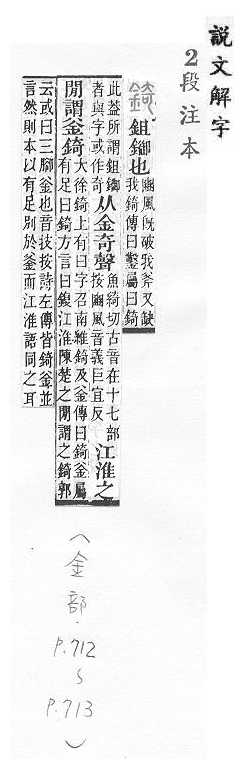 說文解字
2段注本
錡 鉏䥏也 豳風旣破我斧又缺我錡傳曰鑿屬曰錡
此葢所謂鉏䥏者與字或作奇 从金奇聲 魚綺切古音在十七部按豳風音義巨宜反 江淮之
閒謂釜錡 大徐錡上有曰字召南維錡及釜傳曰錡釜屬有足曰錡方言曰鍑江淮陳楚之閒謂之錡郭
云或曰三腳釜也音技按詩左傳皆錡釜並言然則本以有足別於釜而江淮語同之耳
(金部·P.712~P.713)